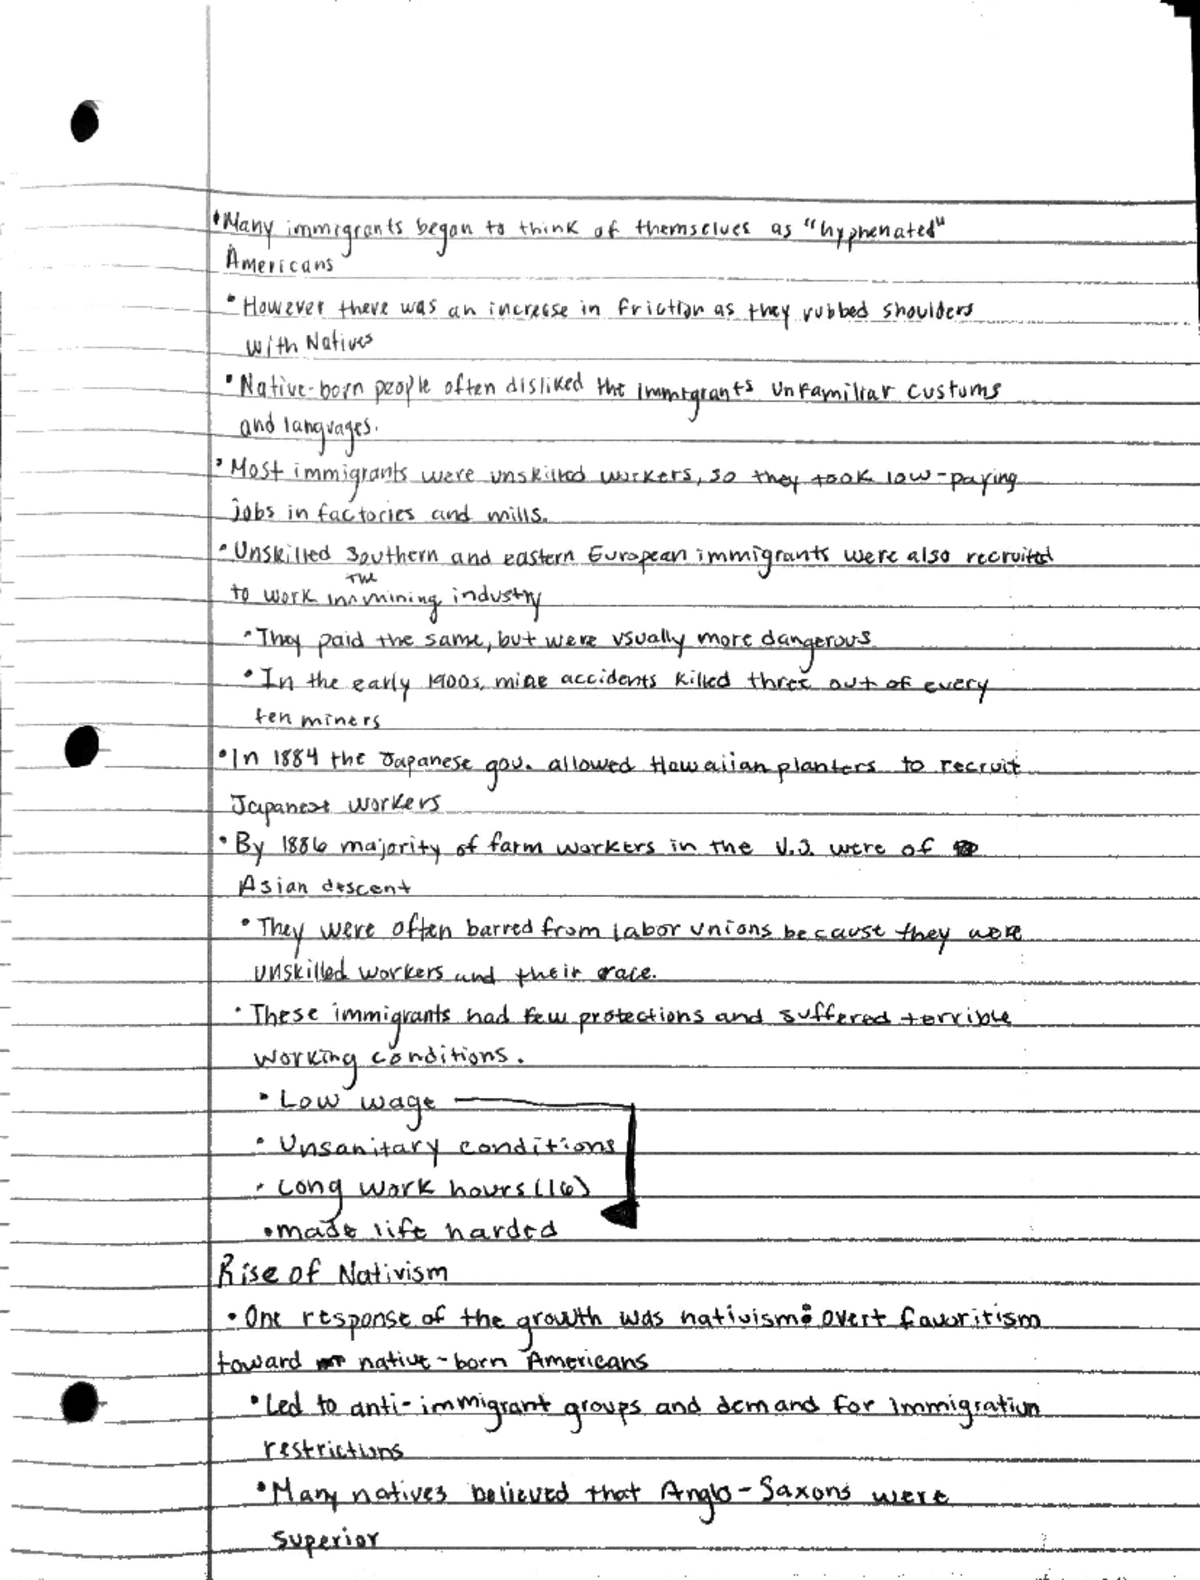 •Many immigrants began to think of themselves as "hyphenated"
Americans
•However there was an increase in friction as they rubbed shoulders
with Natives
•Native-born people often disliked the immigrants unfamiliar customs
and languages.
•Most immigrants were unskilled workers, so they took low-paying
jobs in factories and mills.
•Unskilled Southern and eastern European immigrants were also recruited
to work in^the mining industry
•They paid the same, but were usually more dangerous
•In the early 1900s, mine accidents killed three out of every
ten miners
•In 1884 the Japanese gov. allowed Hawaiian planters to recruit
Japanese workers
•By 1886 majority of farm workers in the U.S. were of
Asian descent
•They were often barred from labor unions because they were
unskilled workers and their race.
•These immigrants had few protections and suffered terrible
working conditions.
•Low wage
•Unsanitary conditions
•Long work hours (16)
•made life harded
Rise of Nativism
•One response of the growth was nativism: overt favoritism
toward native-born Americans
•Led to anti-immigrant groups and demand for immigration
restrictions
•Many natives believed that Anglo-Saxons were
superior